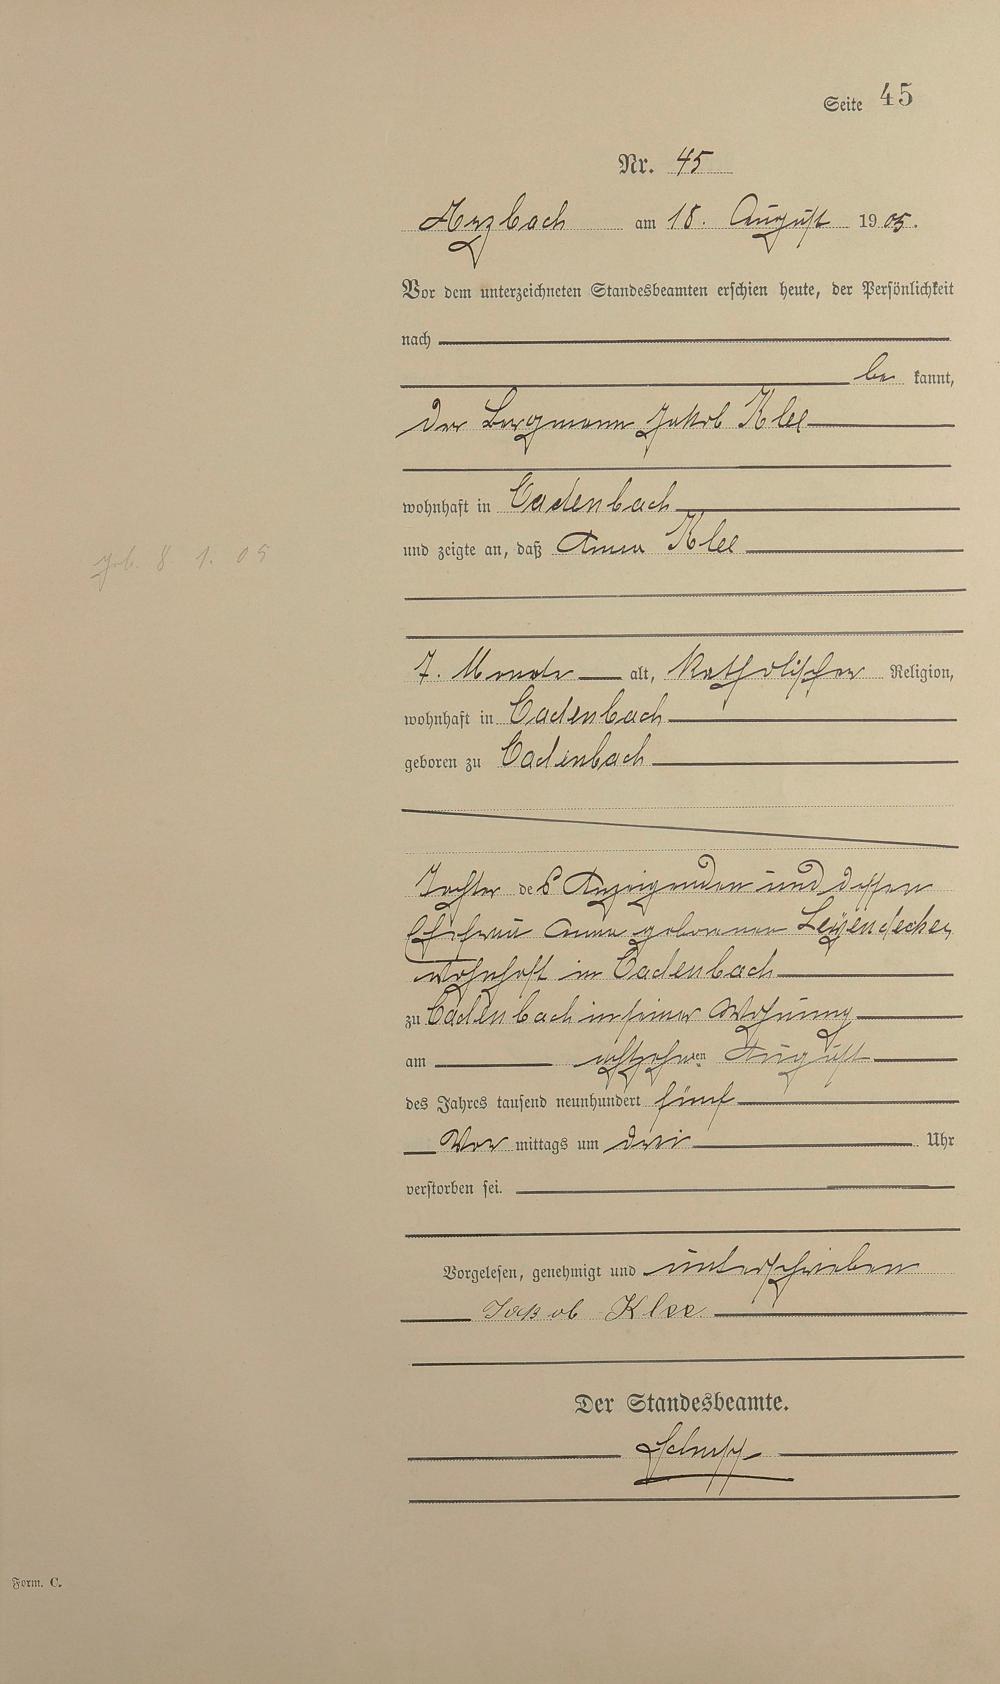 Seite 45
Nr. 45
Arzbach am 18. August 1905.
Vor dem unterzeichneten Standesbeamten erschien heute, der Persönlichkeit
nach
be kannt,
der Bergmann Jakob Klee
wohnhaft in Cadenbach
und zeigte an, daß Anna Klee
geb. 8 1. 05
7. Monate alt, katholischer Religion,
wohnhaft in Cadenbach
geboren zu Cadenbach
Tochter des Anzeigenden und dessen
Ehefrau Anna geborenen Leyendecker,
wohnhaft in Cadenbach
zu Cadenbach in seiner Wohnung
am achtzehnten August
des Jahres tausend neunhundert fünf
Vor mittags um drei Uhr
verstorben sei.
Vorgelesen, genehmigt und unterschrieben
Jakob Klee.
Der Standesbeamte.
Form. C.